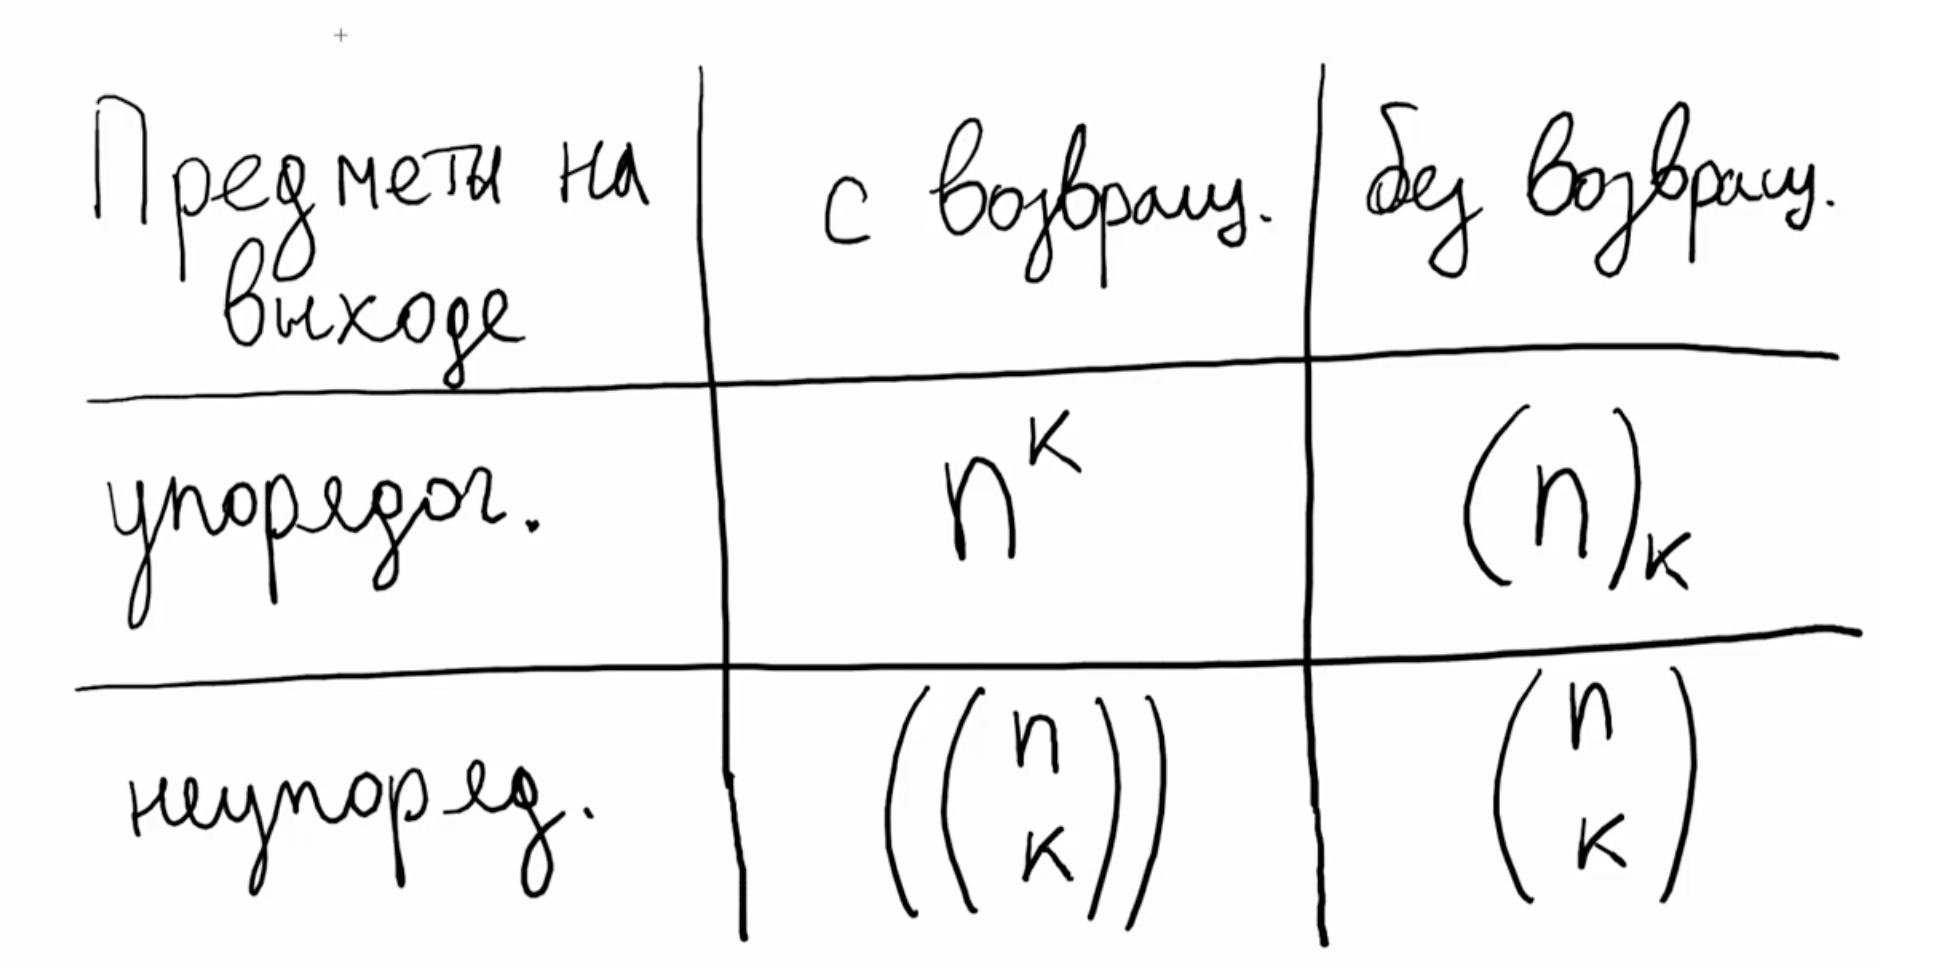 Предметы на
выходе
с возвращ.
без возвращ.
упорядоч.
n^k
(n)_k
неупоряд.
((n k))
(n k)